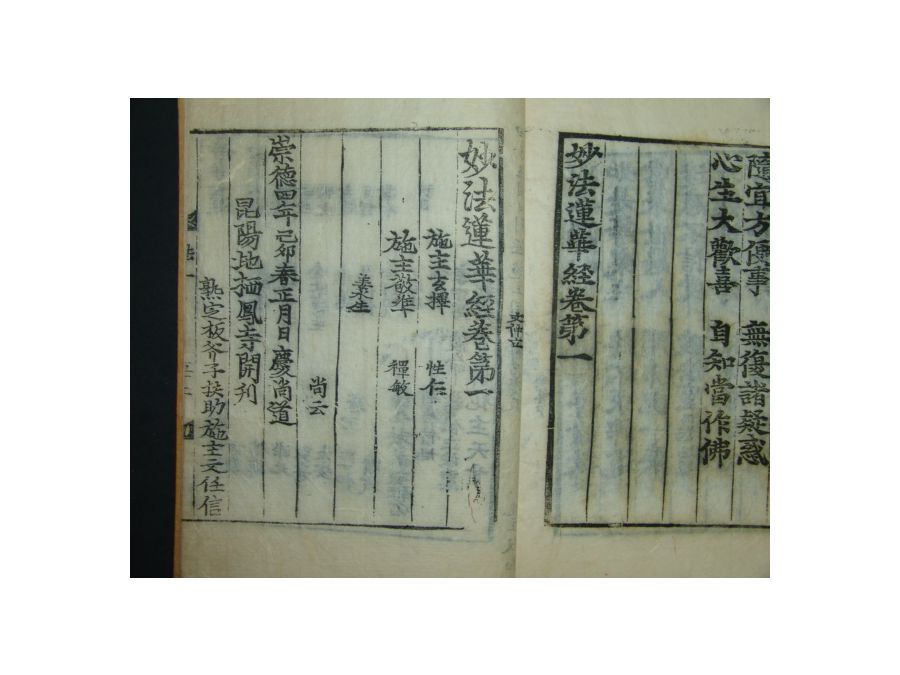 隨宜方便事 無復諸疑惑
心生大歡喜 自知當作佛
妙法蓮華經卷第一
妙法蓮華經卷第一
施主玄擇 性仁
施主敬準 禪敏
姜水生
尚云
崇德四年己卯春正月日慶尚道
昆陽地栖鳳寺開刊
熟定板斧子扶助施主文任信